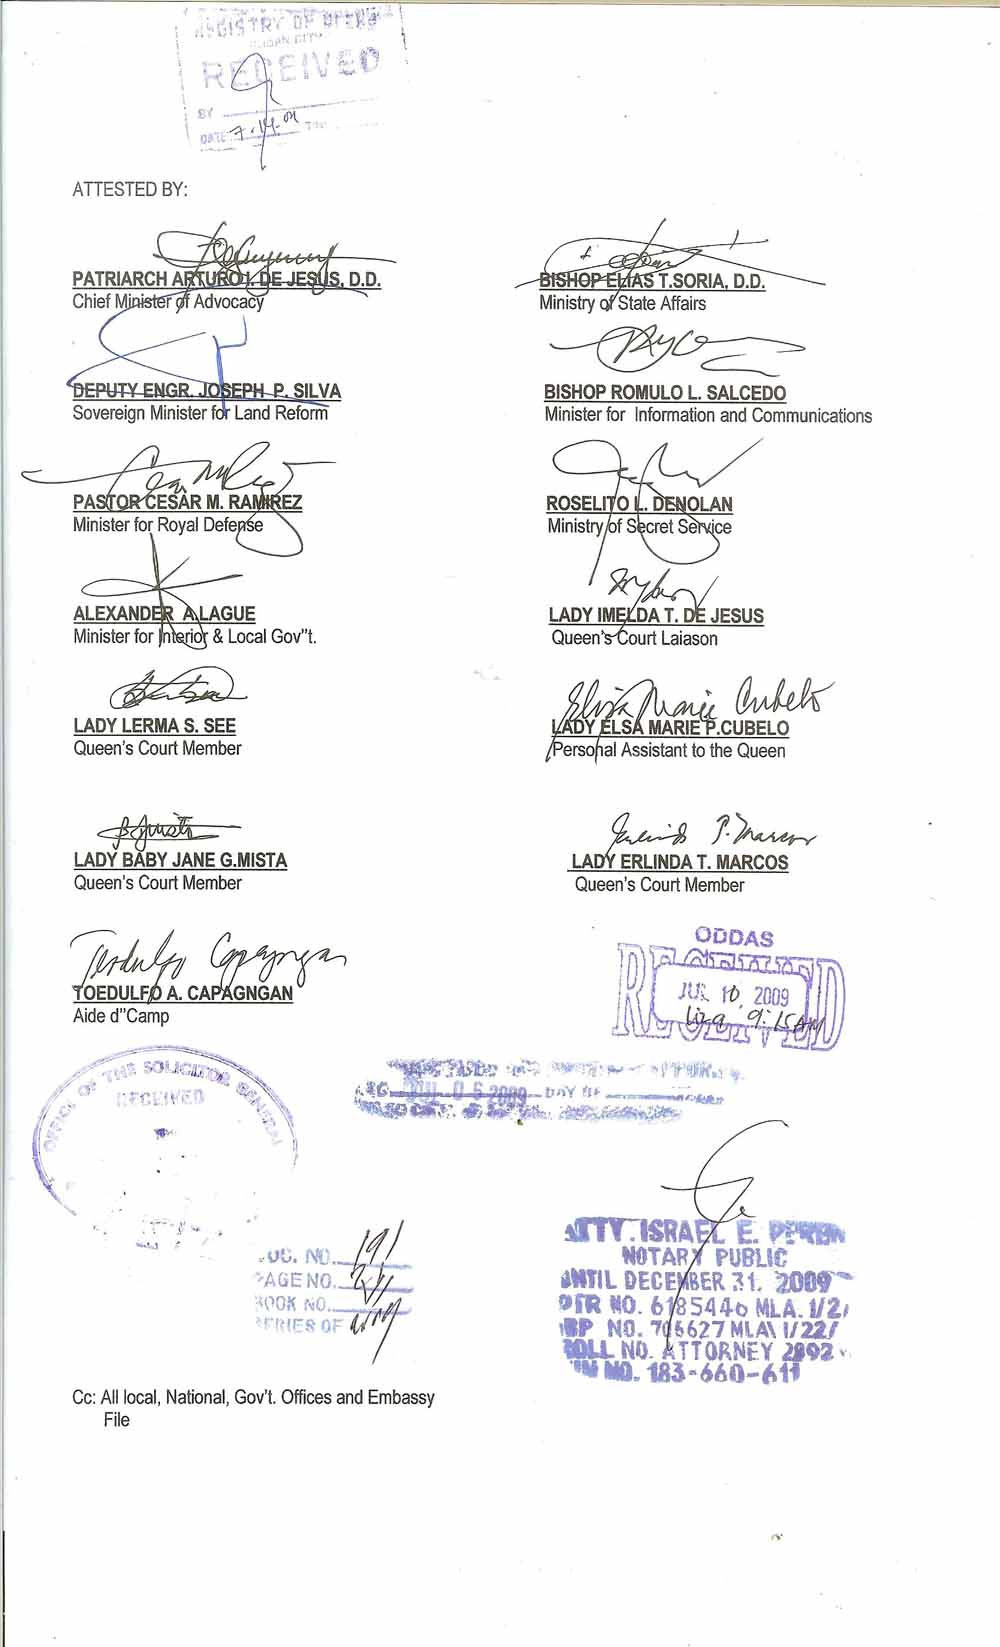 REGISTRY OF DEEDS
RECEIVED
BY
DATE: 7-14-09
ATTESTED BY:
PATRIARCH ARTURO I. DE JESUS, D.D.
Chief Minister of Advocacy
BISHOP ELIAS T.SORIA, D.D.
Ministry of State Affairs
DEPUTY ENGR. JOSEPH P. SILVA
Sovereign Minister for Land Reform
BISHOP ROMULO L. SALCEDO
Minister for Information and Communications
PASTOR CESAR M. RAMIREZ
Minister for Royal Defense
ROSELITO L. DENOLAN
Ministry of Secret Service
ALEXANDER A.LAGUE
Minister for Interior & Local Gov"t.
LADY IMELDA T. DE JESUS
Queen's Court Laiason
LADY LERMA S. SEE
Queen's Court Member
Elisa Marie Cubelo
LADY ELSA MARIE P.CUBELO
Personal Assistant to the Queen
LADY BABY JANE G.MISTA
Queen's Court Member
LADY ERLINDA T. MARCOS
Queen's Court Member
Teodulfo Capagngan
TOEDULFO A. CAPAGNGAN
Aide d"Camp
ODDAS
RECEIVED
JUL 10, 2009
9:15AM
OFFICE OF THE SOLICITOR GENERAL
RECEIVED
JUL 06 2009 DAY OF
DOC. NO. 191
PAGE NO.
BOOK NO.
SERIES OF
ATTY. ISRAEL E.
NOTARY PUBLIC
UNTIL DECEMBER 31, 2009
PTR NO. 6185446 MLA. 1/2/
IBP NO. 706627 MLA 1/22/
ROLL NO. ATTORNEY 2892
TIN NO. 183-660-611
Cc: All local, National, Gov't. Offices and Embassy
File